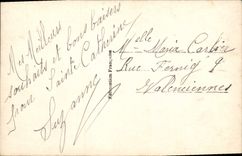 Mes Meilleurs
souhaits et bons baisers
pour Sainte Catherine
Suzanne
Melle Maria Carlier
Rue Fernig 9
Valenciennes